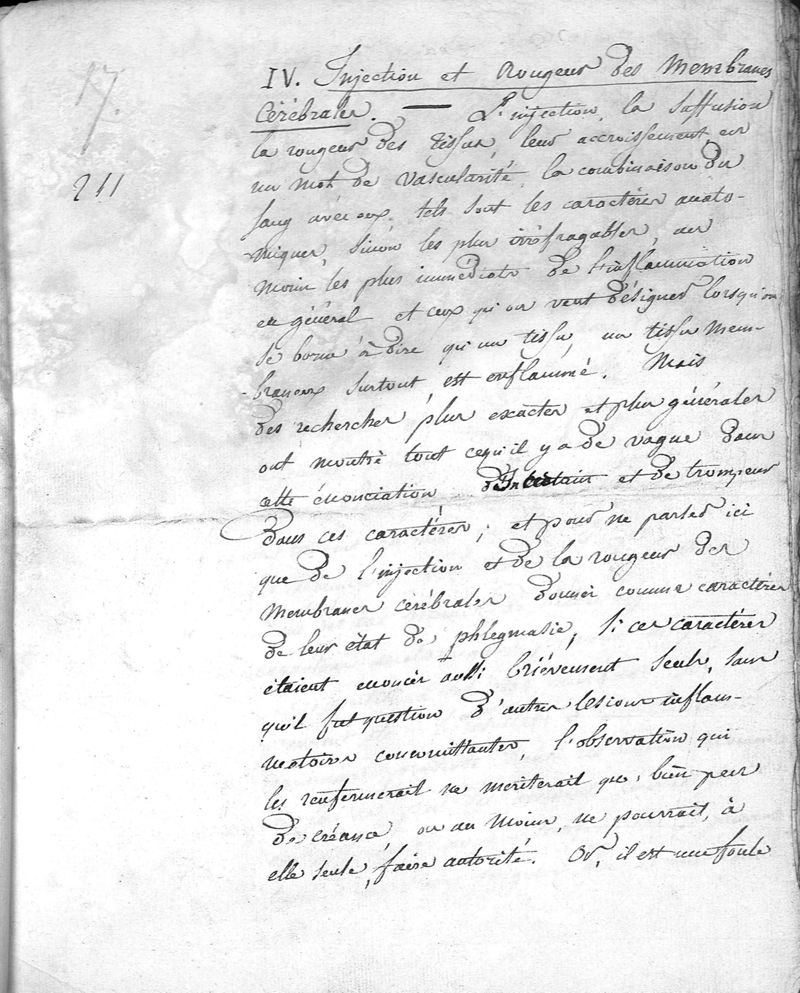 17.
211
IV. Injection et Rougeur des Membranes
Cérébrales. — L'injection, la suffusion
la rougeur des tissus, leur accroissement en
un mot de vascularité, la combinaison du
sang avec eux, tels sont les caractères anato-
miques, sinon les plus irréfragables, au
moins les plus immédiats de l'inflammation
en général et ceux qu'on veut désigner lorsqu'on
se borne à dire qu'un tissu, un tissu mem-
braneux surtout, est enflammé. Mais
des recherches plus exactes et plus générales
ont montré tout ce qu'il y a de vague dans
cette énonciation et de trompeur
dans ces caractères; et pour ne parler ici
que de l'injection et de la rougeur des
membranes cérébrales données comme caractères
de leur état de phlegmasie, si ces caractères
étaient énoncés aussi brièvement seuls, sans
qu'il fut question d'autres lésions inflam-
matoires concomittantes, l'observation qui
les renfermerait ne mériterait que bien peu
de créance, ou au moins, ne pourrait, à
elle seule, faire autorité. Or, il est une foule